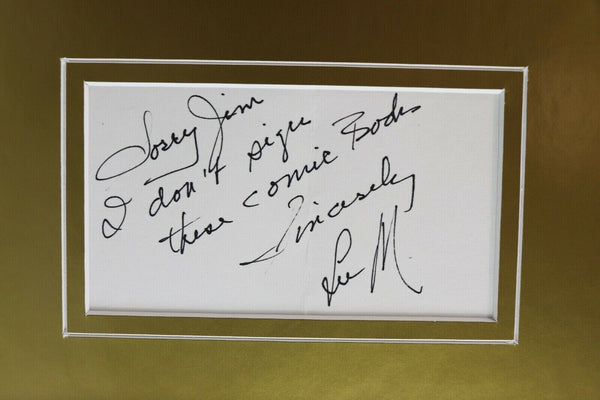 Sorry Jim
I don't sign
these comic Books
Sincerely
Lee M.